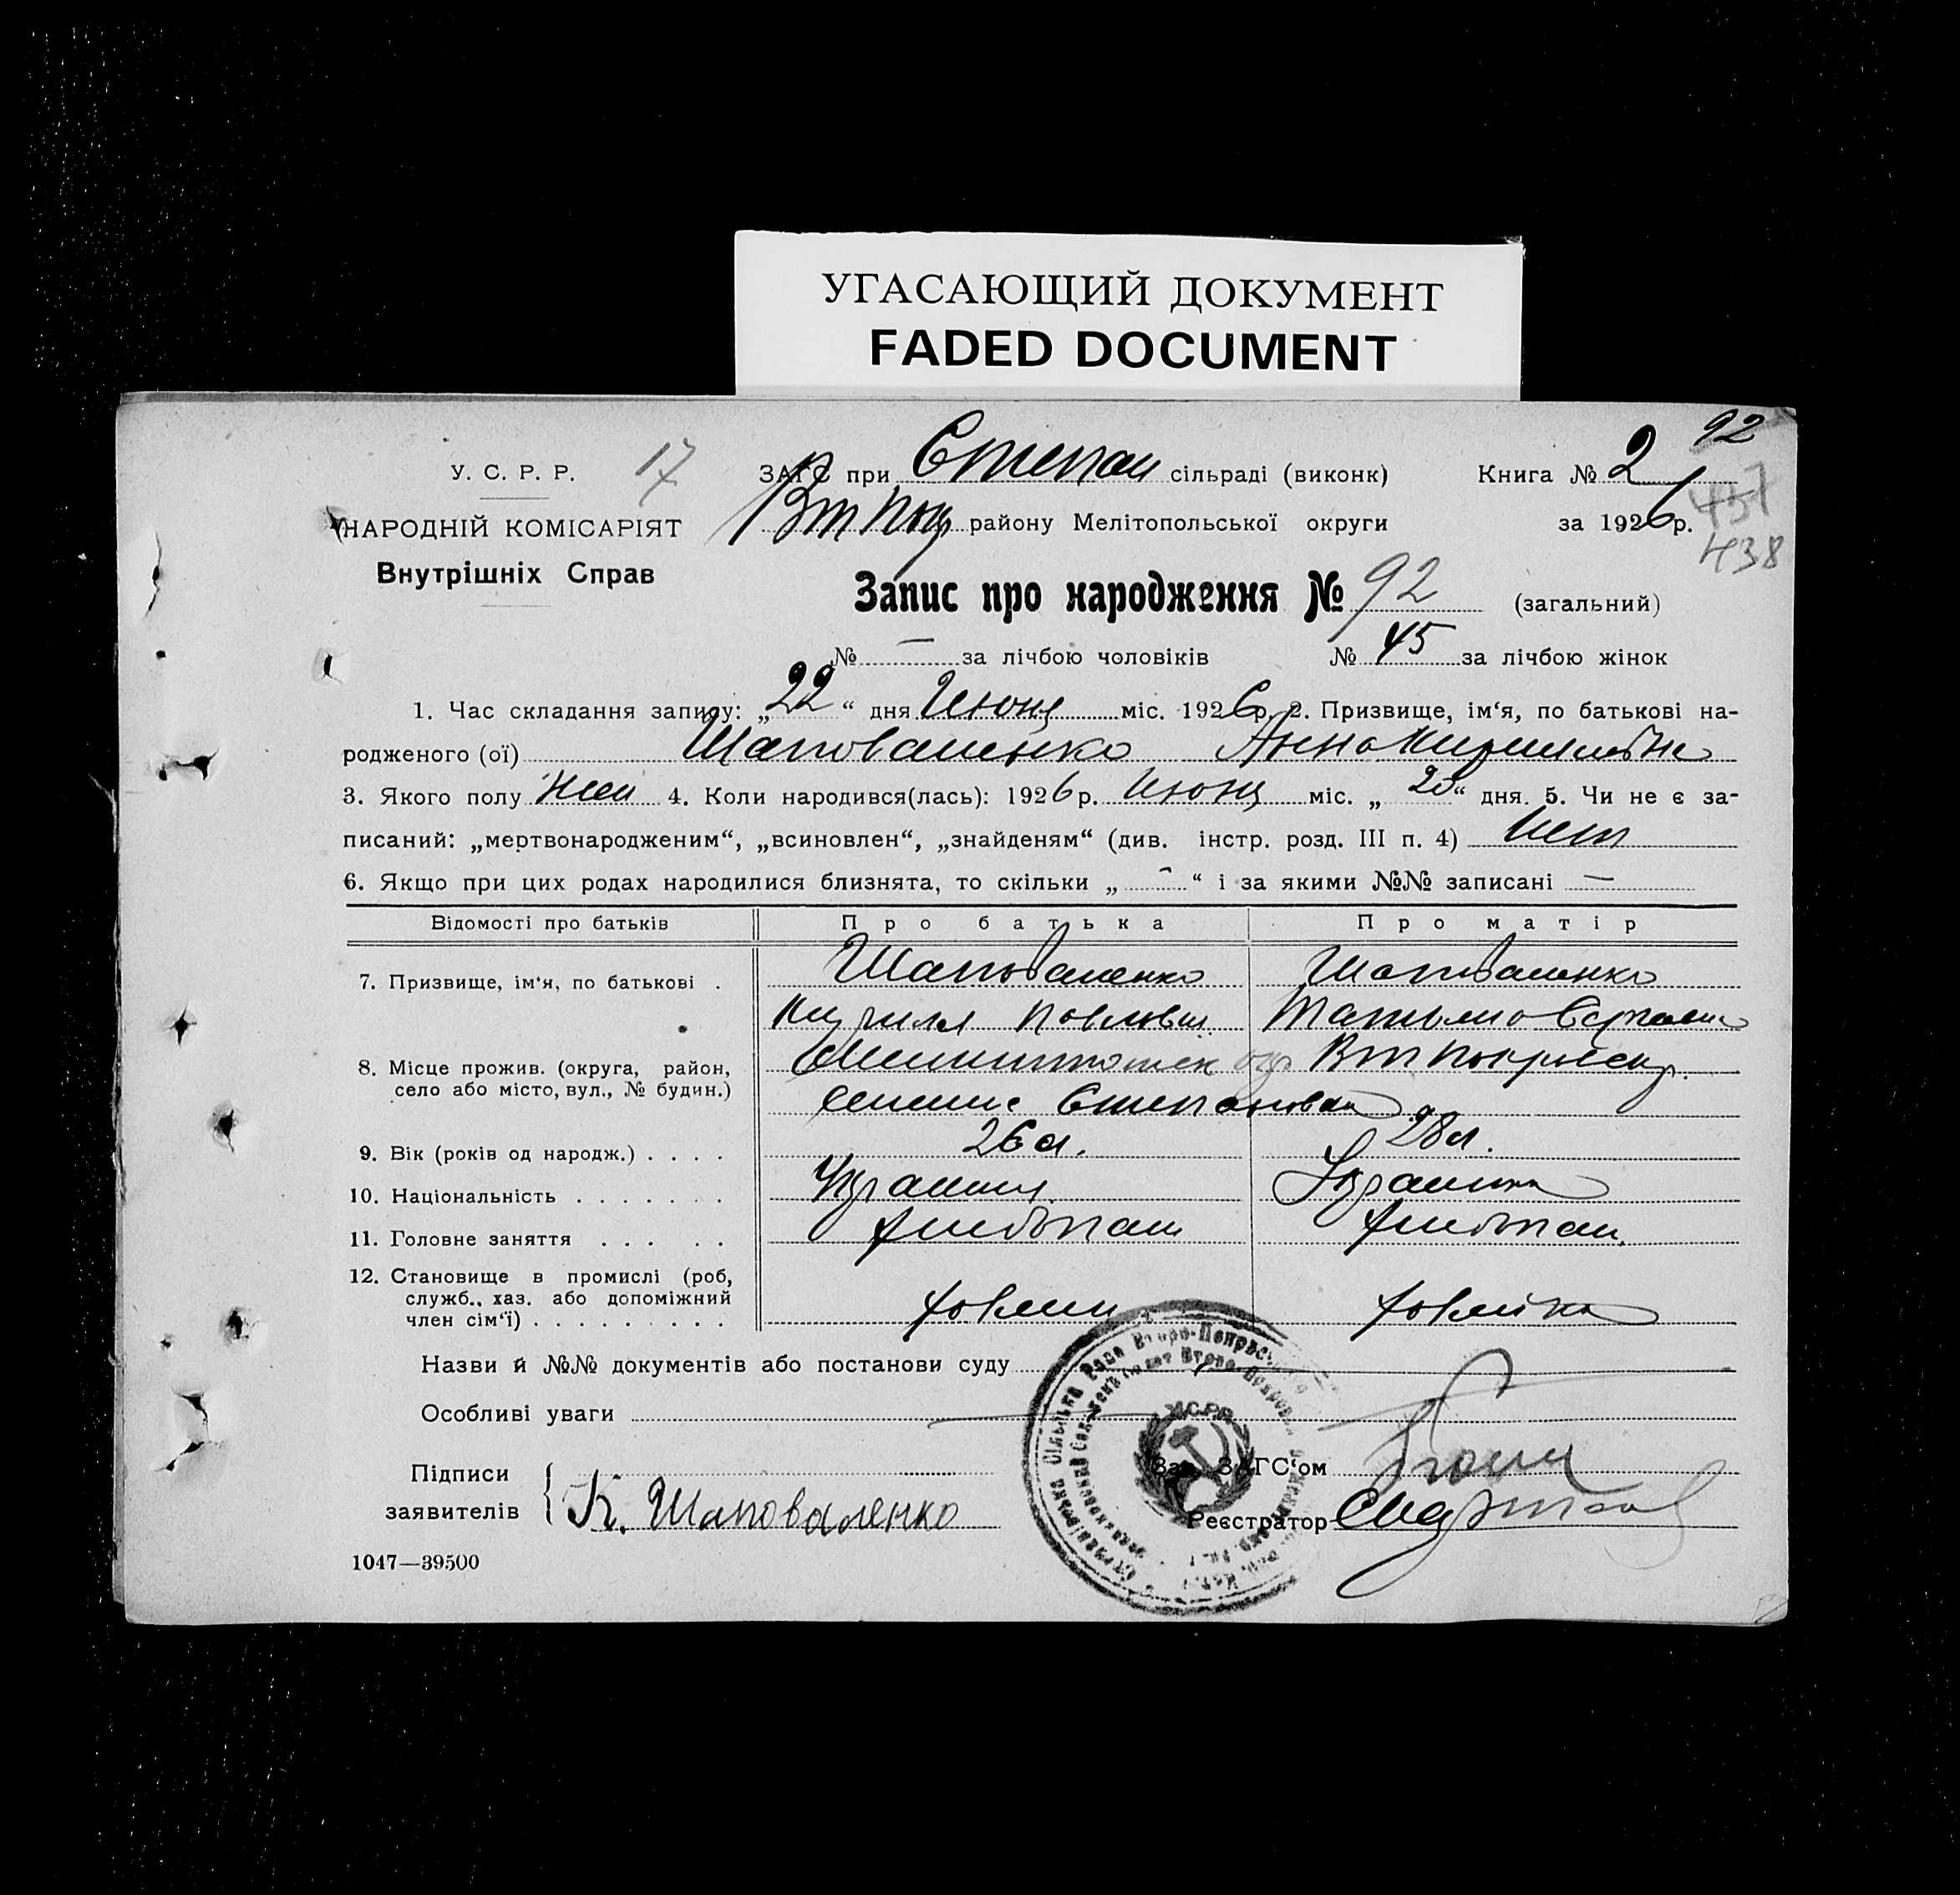 УГАСАЮЩИЙ ДОКУМЕНТ
FADED DOCUMENT
92
У. С. Р. Р. 17 ЗАГС при Степан сільраді (виконк) Книга № 2
451
НАРОДНІЙ КОМІСАРІЯТ Вт Покр району Мелітопольської округи за 1926 р.
438
Внутрішніх Справ
Запис про народження № 92 (загальний)
№ — за лічбою чоловіків № 45 за лічбою жінок
1. Час складання запису: „22“ дня Июня міс. 1926 р. 2. Призвище, ім‘я, по батькові на-
родженого (ої) Шаповаленко Анна Кирилловна
3. Якого полу жен 4. Коли народився(лась): 1926 р. Июня міс. „20“ дня. 5. Чи не є за-
писаний: „мертвонародженим“, „всиновлен“, „знайденям“ (див. інстр. розд. III п. 4) Нет
6. Якщо при цих родах народилися близнята, то скільки „-“ і за якими №№ записані —
Відомості про батьків Про батька Про матір
7. Призвище, ім‘я, по батькові . Шаповаленко Шаповаленко
Кирилл Павлович Татьяна
8. Місце прожив. (округа, район, Мелитопольск окр Вт Покровск р.
село або місто, вул., № будин.) селение Степановка
9. Вік (років од народж.) . . . . 26 л. 28 л.
10. Національність . . . . . . . Украинец Украинка
11. Головне заняття . . . . . хлебопаш хлебопаш.
12. Становище в промислі (роб,
служб., хаз. або допоміжний
член сім‘ї) . . . . . . . . . хозяин хозяйка
Назви й №№ документів або постанови суду
Особливі уваги
У.С.Р.Р.
Підписи
Зав. ЗАГС‘ом
заявителів К. Шаповаленко Реєстратор
1047—39500